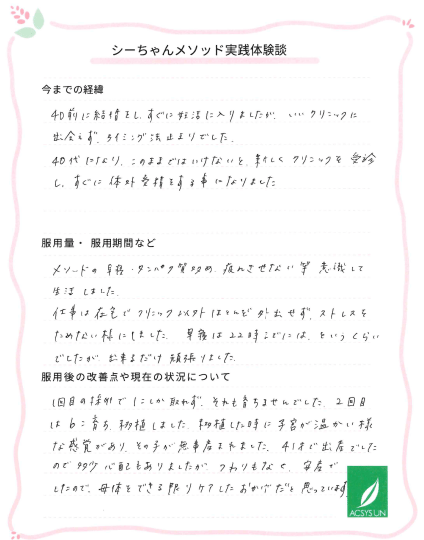 シーちゃんメソッド実践体験談
今までの経緯
40前に結婚をし、すぐに妊活に入りましたが、いいクリニックに
出会えず、タイミング法止まりでした。
40代になり、このままではいけないと、新しくクリニックを受診
し、すぐに体外受精をする事になりました
服用量・服用期間など
メソッドの早寝・タンパク質多め、疲れさせない等意識して
生活しました。
仕事は在宅でクリニック以外ほとんど外出せず、ストレスを
ためない様にしました。早寝は22時までには、というくらい
でしたが、出来るだけ頑張りました。
服用後の改善点や現在の状況について
1回目の採卵で1こしか取れず、それも育ちませんでした。2回目
は6こ育ち、移植しました。移植した時に子宮が温かい様
な感覚があり、その子が無事産まれました。41才で出産でした
ので多少心配もありましたが、つわりもなく、安産で
したので、母体をできる限りケアしたおかげだと思っています
ACSYS UN